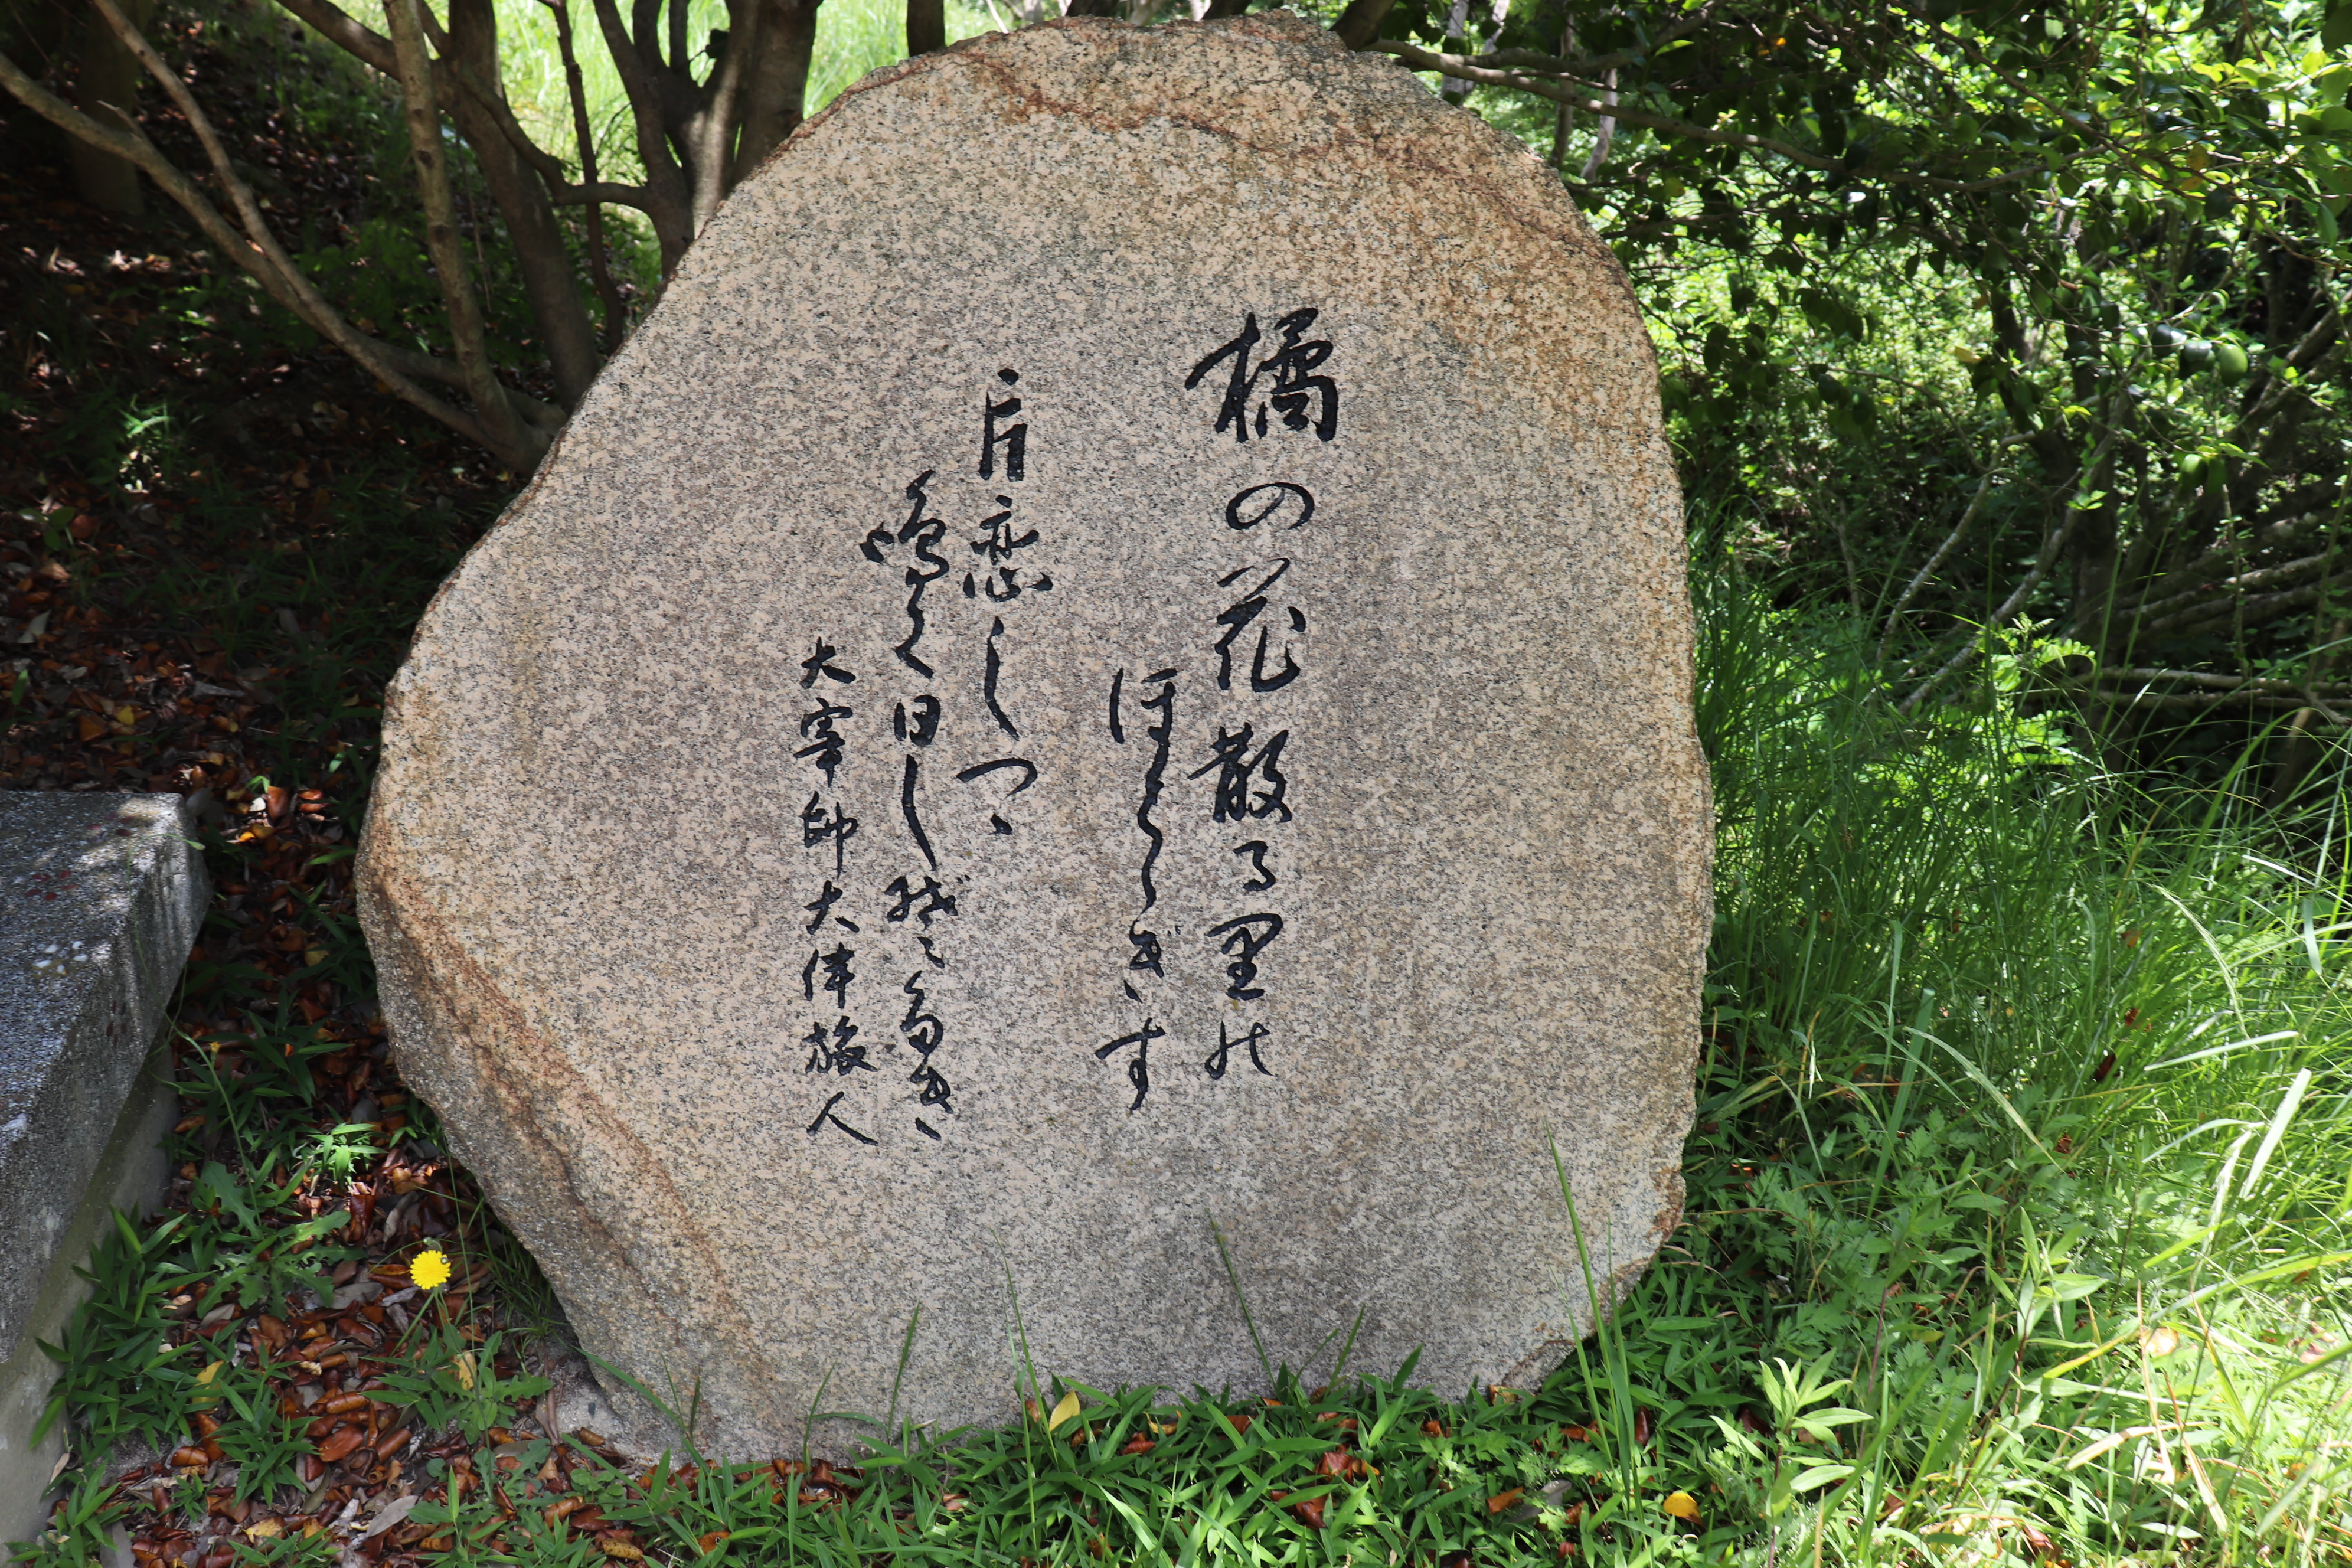 橘の花散る里の
ほとゝぎす
片恋しつゝ
鳴く日しぞ多き
大宰帥大伴旅人